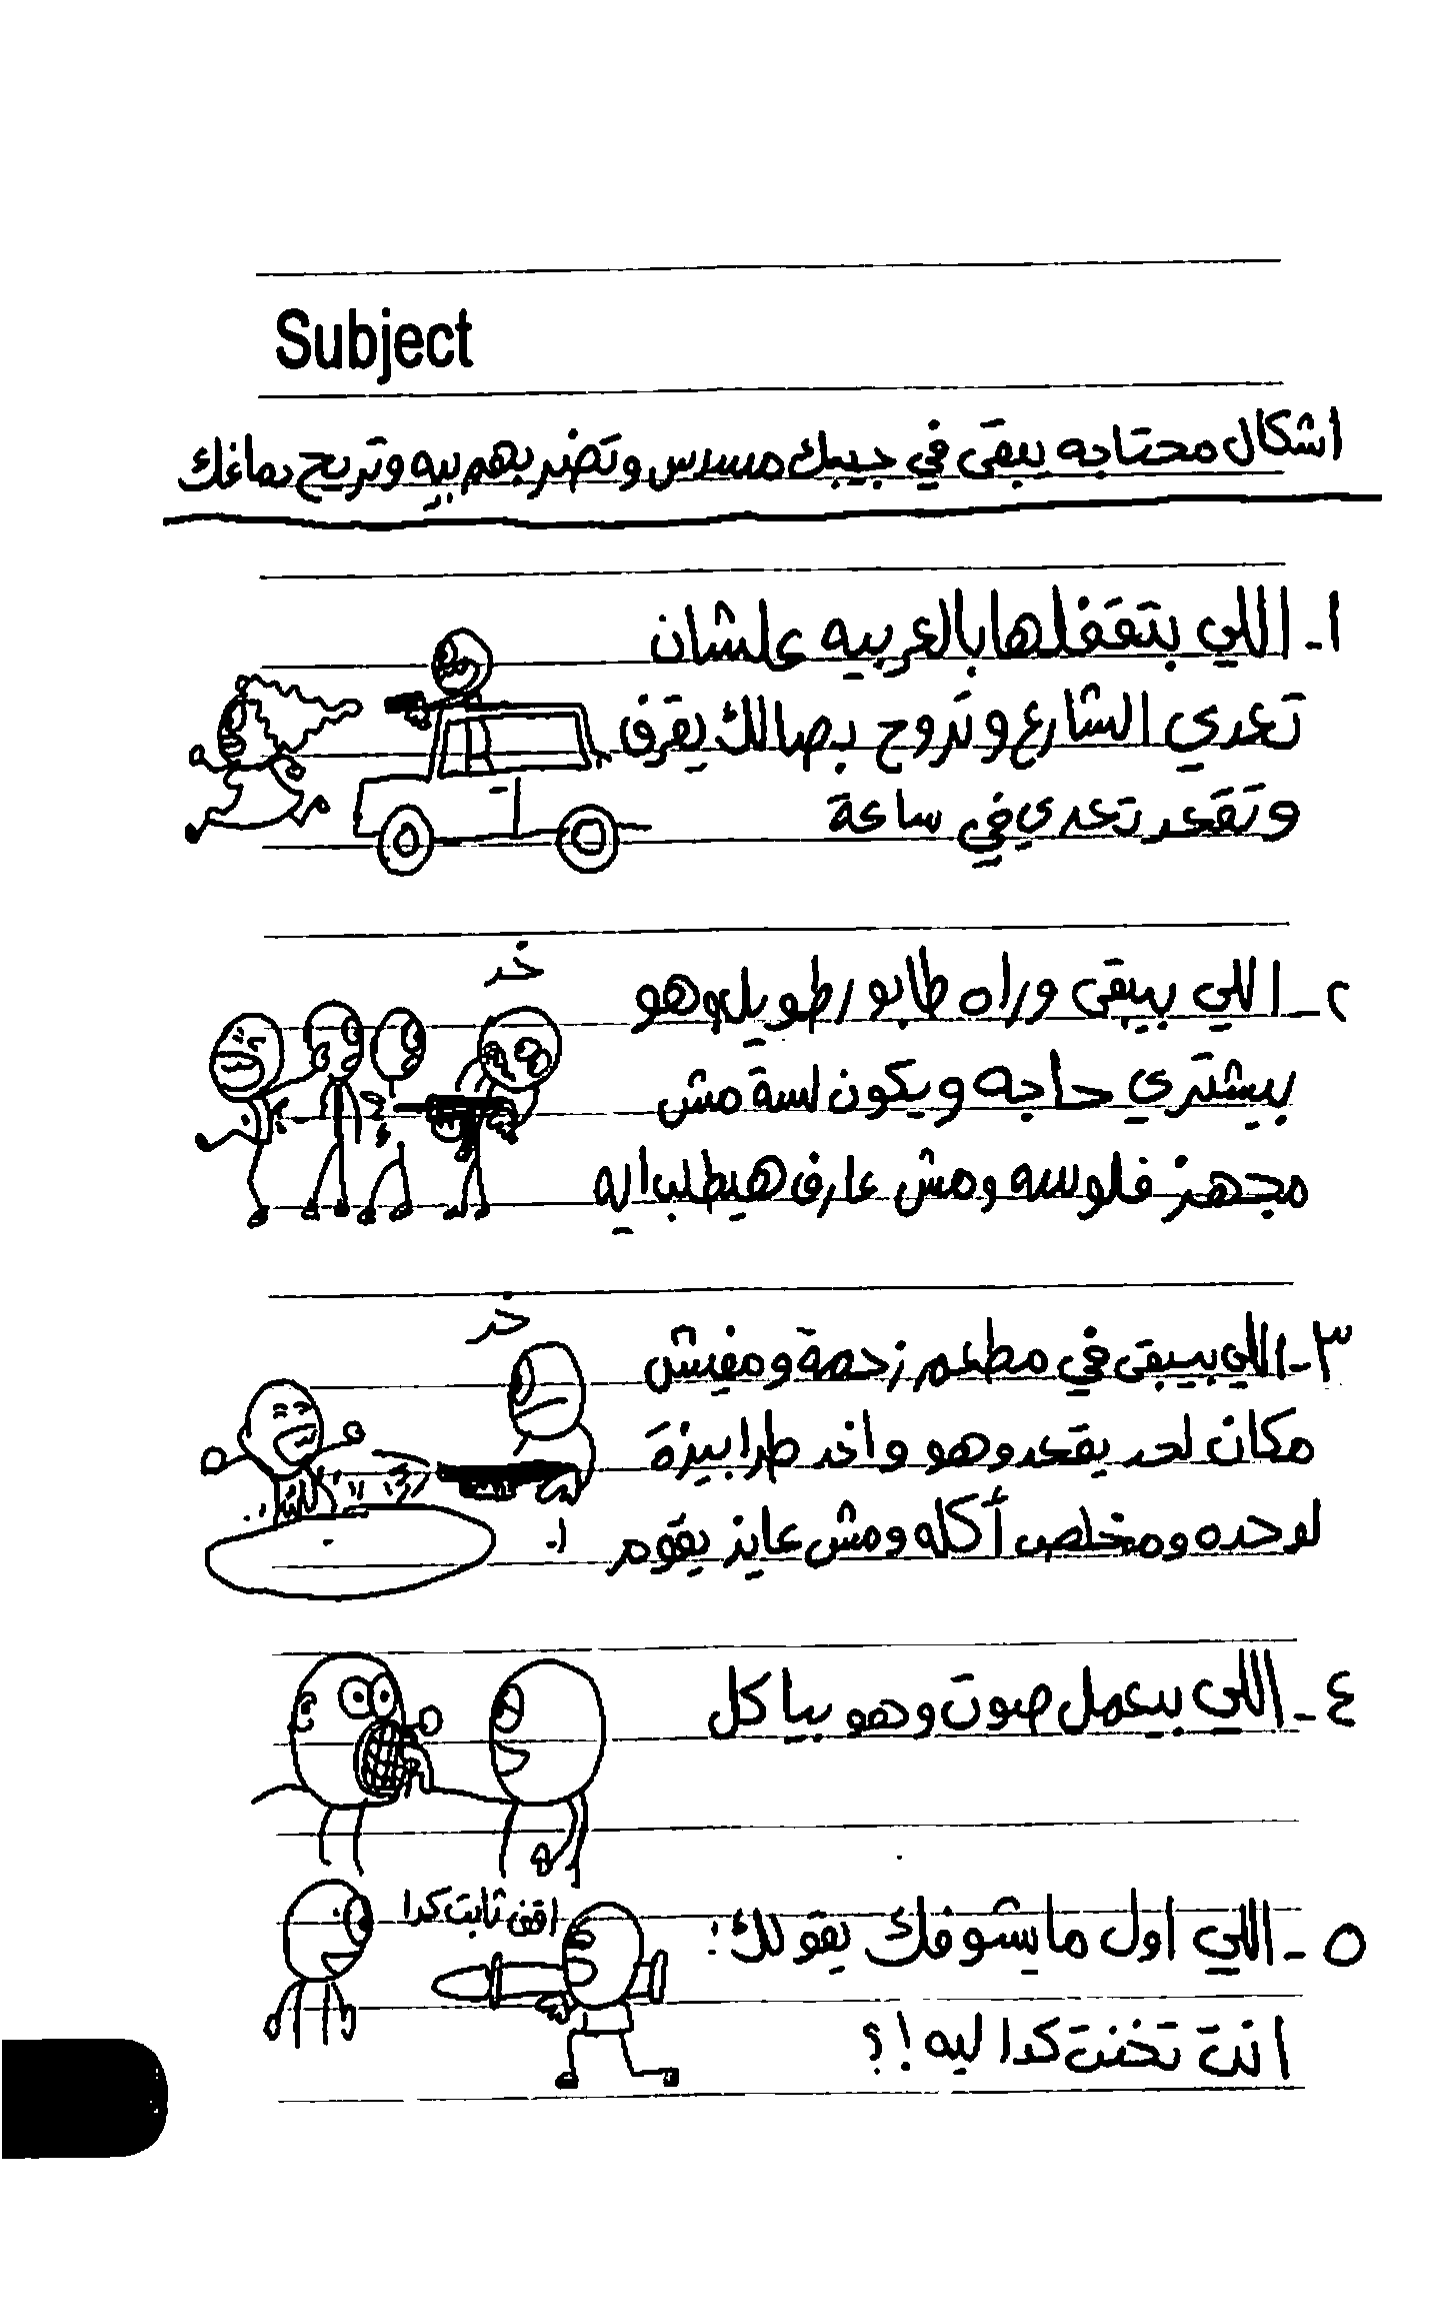 Subject
اشكال محتاجه يبقى في جيبك مسدس وتضربهم بيه وتريح دماغك
١- اللي بتقفلها بالعربيه علشان
تعدي الشارع وتروح بصالك بقرف
وتقعد تعدي في ساعة
خد
٢- اللي بيبقى وراه طابور طويل وهو
بيشتري حاجه ويكون لسة مش
مجهز فلوسه ومش عارف هيطلب ايه
خد
٣- اللي بيبقى في مطعم زحمة ومفيش
مكان لحد يقعد وهو واخد طرابيزة
لوحده ومخلص أكله ومش عايز يقوم
٤- اللي بيعمل صوت وهو بياكل
اقف ثابت كدا
٥- اللي اول مايشوفك يقولك:
انت تخنت كدا ليه!؟